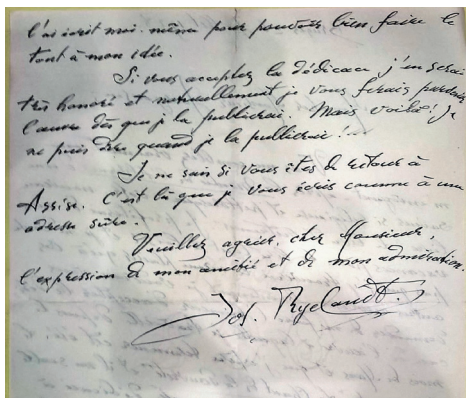 l'ai écrit moi-même pour pouvoir bien faire le
tout à mon idée.
Si vous acceptez la dédicace j'en serai
très honoré et naturellement je vous ferais parvenir
l'œuvre dès que je la publierai. Mais voilà! Je
ne puis dire quand je la publierai!
Je ne sais si vous êtes de retour à
Assise. C'est là que je vous écris comme à une
adresse sûre.
Veuillez agréer, cher Monsieur,
l'expression de mon amitié et de mon admiration.
Jos. Ryelandt.